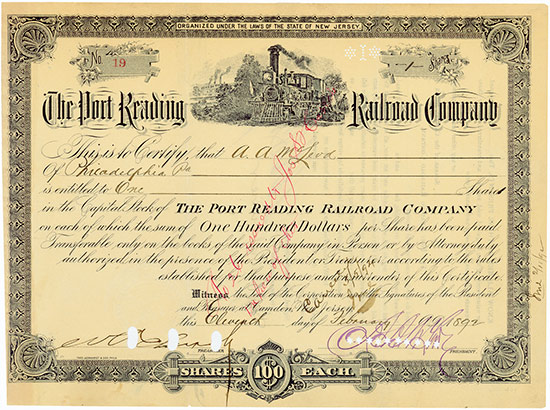 ORGANIZED UNDER THE LAWS OF THE STATE OF NEW JERSEY.
No 19
*1*
1 Share
The Port Reading Railroad Company
This is to Certify, that A. A. McLeod
Of Philadelphia Pa
is entitled to One Shares
in the Capital Stock of THE PORT READING RAILROAD COMPANY
on each of which the sum of One Hundred Dollars per Share has been paid
Transferable only on the books of the said Company in Person or by Attorney duly
authorized, in the presence of the President or Treasurer, according to the rules
established for that purpose and on surrender of this Certificate
Witness the Seal of the Corporation and the signatures of the President
and Treasurer at Camden, New Jersey
this Eleventh day of February 1892
TREASURER PRESIDENT
SHARES 100 EACH.